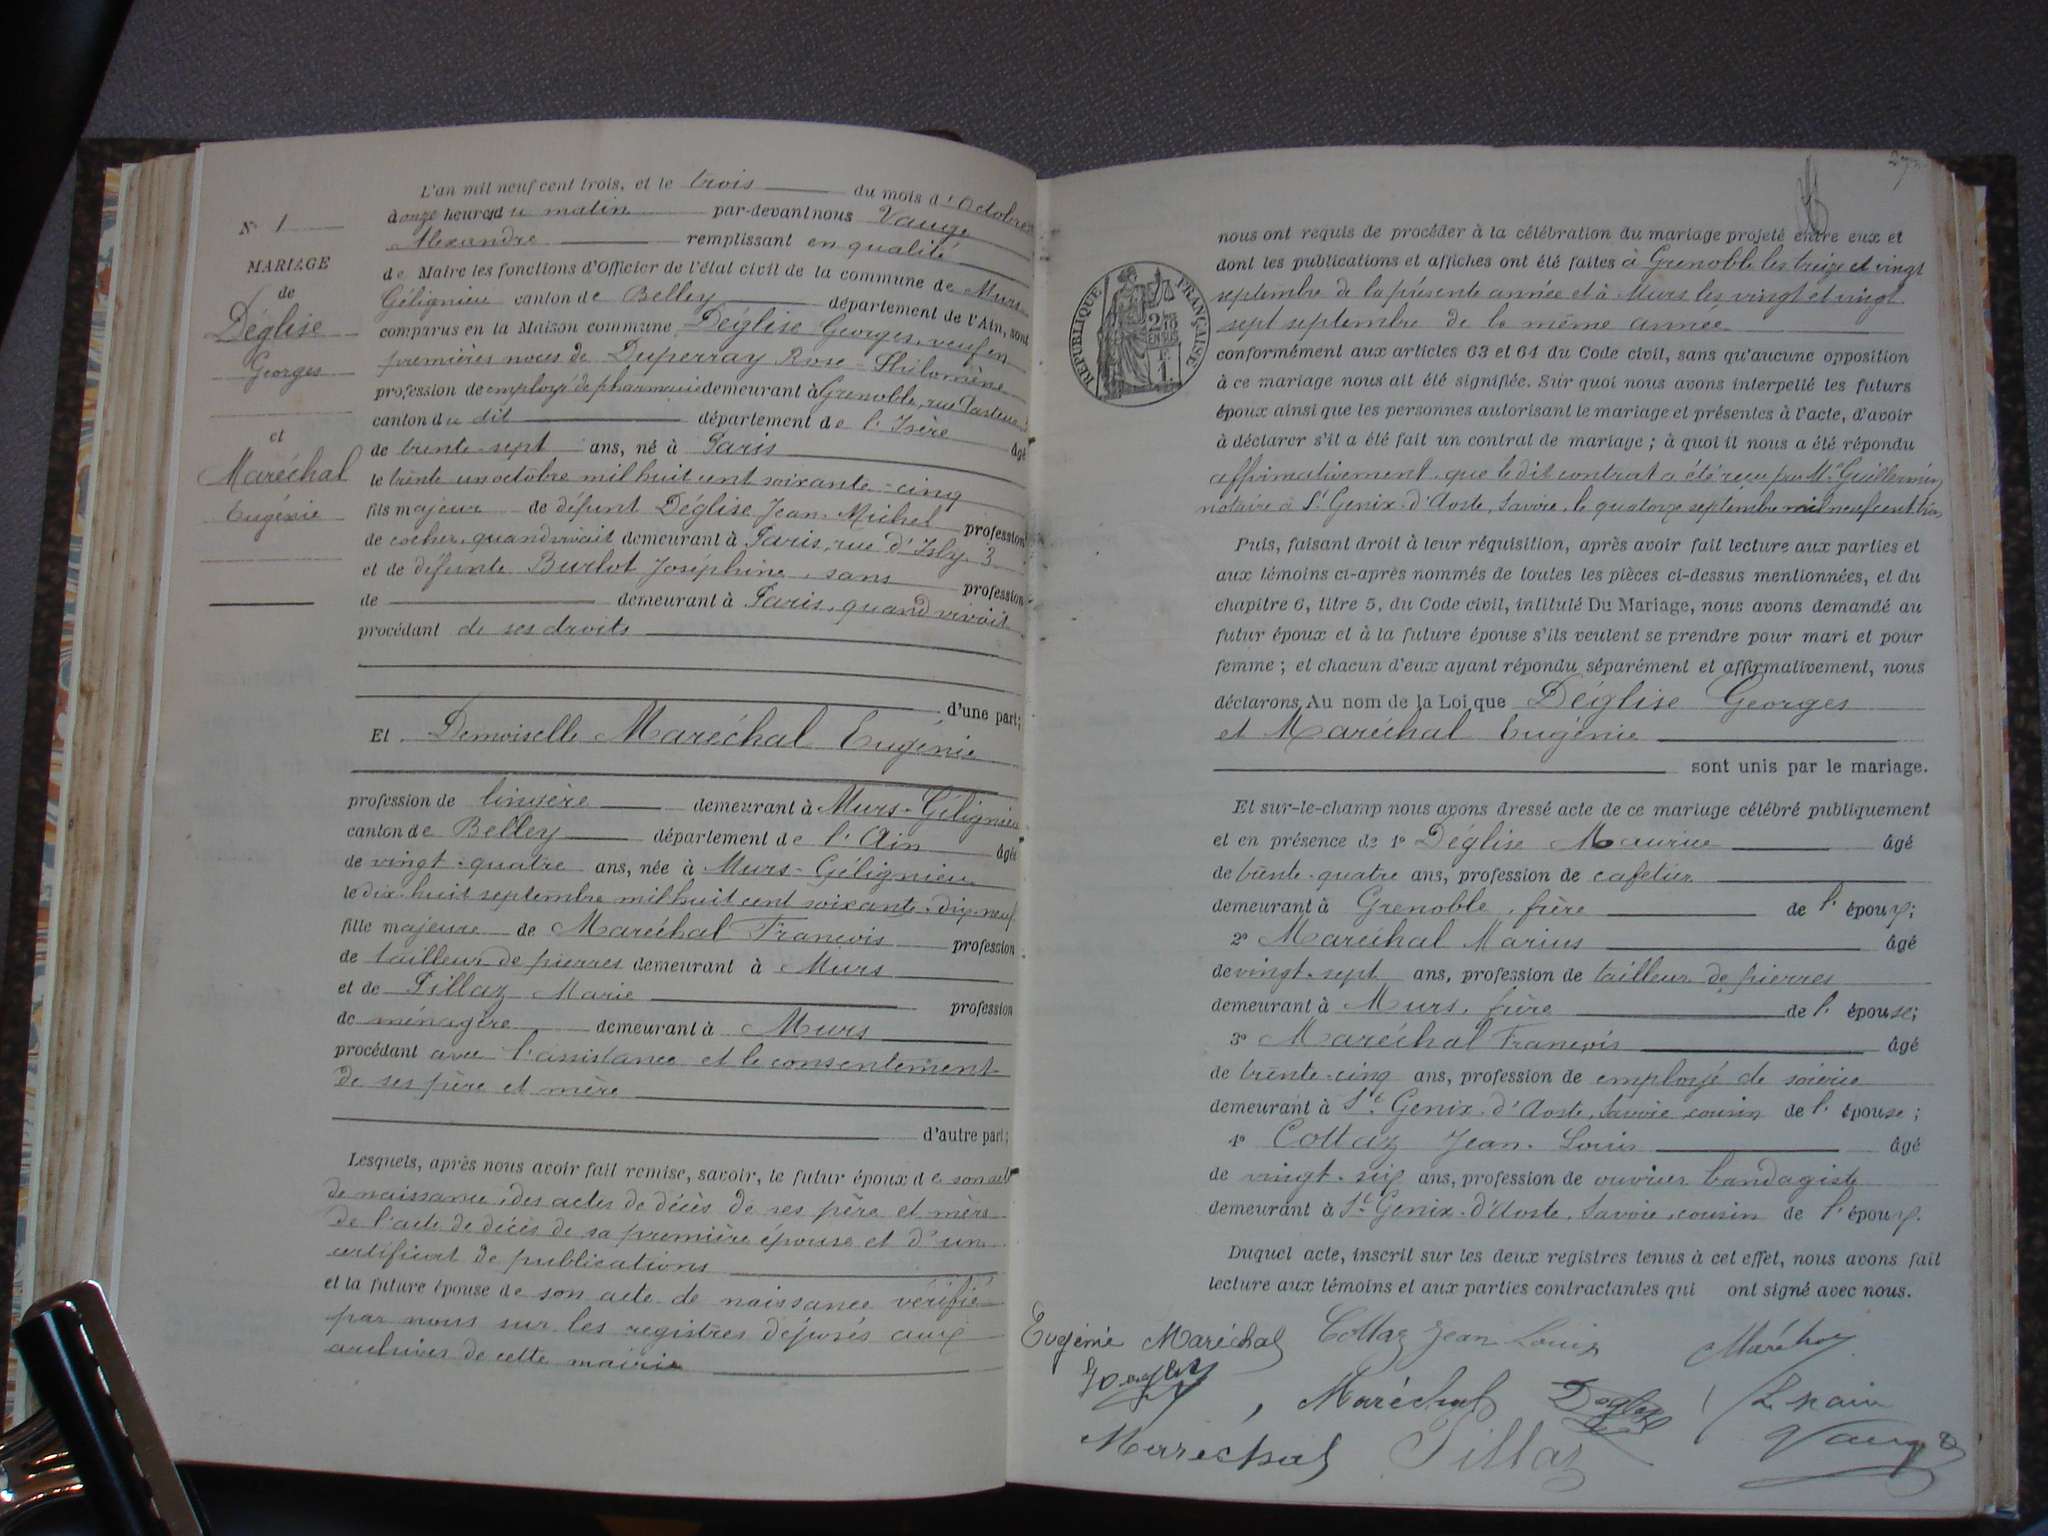 N° 1
MARIAGE
de
Déglise
Georges
et
Maréchal
Eugénie
L'an mil neuf cent trois, et le trois du mois d'Octobre
à onze heures du matin par-devant nous Vauge
Alexandre remplissant en qualité
de Maire les fonctions d'Officier de l'état civil de la commune de Murs
Gélignieu canton de Belley département de l'Ain, sont
comparus en la Maison commune Déglise Georges, veuf en
premières noces de Duperray Rose Philomène
profession de employé de pharmacie demeurant à Grenoble, rue Pasteur
canton du dit département de l'Isère âgé
de trente-sept ans, né à Paris
le trente un octobre mil huit cent soixante-cinq
fils majeur de défunt Déglise Jean-Michel profession
de cocher, quand vivait demeurant à Paris, rue d'Isly, 3
et de défunte Burlot Joséphine, sans profession
de demeurant à Paris, quand vivait
procédant de ses droits
d'une part;
Et Demoiselle Maréchal Eugénie
profession de lingère demeurant à Murs-Gélignieu
canton de Belley département de l'Ain âgée
de vingt-quatre ans, née à Murs-Gélignieu
le dix-huit septembre mil huit cent soixante-dix-neuf
fille majeure de Maréchal François profession
de tailleur de pierres demeurant à Murs
et de Pillaz Marie profession
de ménagère demeurant à Murs
procédant avec l'assistance et le consentement
de ses père et mère
d'autre part;
Lesquels, après nous avoir fait remise, savoir, le futur époux de son acte
de naissance, des actes de décès de ses père et mère
de l'acte de décès de sa première épouse et d'un
certificat de publications
et la future épouse de son acte de naissance vérifié
par nous sur les registres déposés aux
archives de cette mairie
27
RÉPUBLIQUE FRANÇAISE
2/10 EN SUS
F. 1.
nous ont requis de procéder à la célébration du mariage projeté entre eux et
dont les publications et affiches ont été faites à Grenoble les treize et vingt
septembre de la présente année et à Murs les vingt et vingt
sept septembre de la même année
conformément aux articles 63 et 64 du Code civil, sans qu'aucune opposition
à ce mariage nous ait été signifiée. Sur quoi nous avons interpellé les futurs
époux ainsi que les personnes autorisant le mariage et présentes à l'acte, d'avoir
à déclarer s'il a été fait un contrat de mariage; à quoi il nous a été répondu
affirmativement, que le dit contrat a été reçu par Me Guillermin
notaire à St Genix-d'Aoste, Savoie, le quatorze septembre mil neuf cent trois
Puis, faisant droit à leur réquisition, après avoir fait lecture aux parties et
aux témoins ci-après nommés de toutes les pièces ci-dessus mentionnées, et du
chapitre 6, titre 5, du Code civil, intitulé Du Mariage, nous avons demandé au
futur époux et à la future épouse s'ils veulent se prendre pour mari et pour
femme; et chacun d'eux ayant répondu séparément et affirmativement, nous
déclarons Au nom de la Loi que Déglise Georges
et Maréchal Eugénie
sont unis par le mariage.
Et sur-le-champ nous avons dressé acte de ce mariage célébré publiquement
et en présence de 1° Déglise Maurice âgé
de trente-quatre ans, profession de cafetier
demeurant à Grenoble, frère de l'époux;
2° Maréchal Marius âgé
de vingt-sept ans, profession de tailleur de pierres
demeurant à Murs, frère de l'épouse;
3° Maréchal François âgé
de trente-cinq ans, profession de employé de soierie
demeurant à St Genix-d'Aoste, Savoie, cousin de l'épouse;
4° Collaz Jean-Louis âgé
de vingt-six ans, profession de ouvrier bandagiste
demeurant à St Genix-d'Aoste, Savoie, cousin de l'époux.
Duquel acte, inscrit sur les deux registres tenus à cet effet, nous avons fait
lecture aux témoins et aux parties contractantes qui ont signé avec nous.
Eugénie Maréchal Collaz Jean Louis
Maréchal
Maréchal Pillaz Vauge